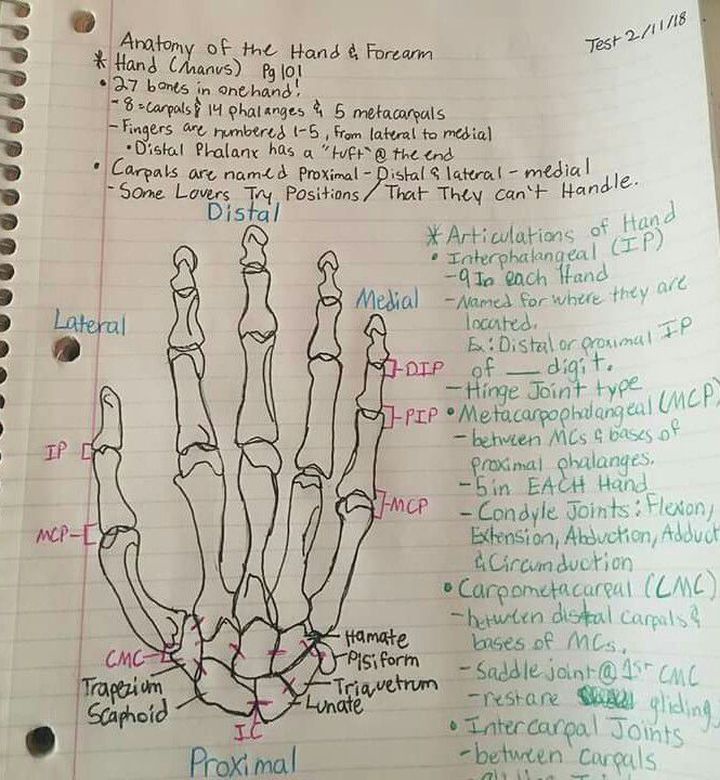 Test 2/11/18
Anatomy of the Hand & Forearm
* Hand (Manus) Pg 101
• 27 bones in one hand!
- 8 = carpals & 14 phalanges & 5 metacarpals
- Fingers are numbered 1-5, from lateral to medial
• Distal Phalanx has a "tuft" @ the end
• Carpals are named Proximal - Distal & lateral - medial
- Some Lovers Try Positions / That They Can't Handle.
Distal
Lateral
Medial
IP
MCP
DIP
PIP
MCP
CMC
Trapezium
Scaphoid
IC
Hamate
Pisiform
Triquetrum
Lunate
Proximal
* Articulations of Hand
• Interphalangeal (IP)
- 9 In each Hand
- Named for where they are
located.
Ex: Distal or proximal IP
of __ digit.
- Hinge Joint type
• Metacarpophalangeal (MCP)
- between MCs & bases of
proximal phalanges.
- 5 in EACH Hand
- Condyle Joints: Flexion,
Extension, Abduction, Adduct
& Circumduction
• Carpometacarpal (CMC)
- between distal carpals &
bases of MCs.
- Saddle joint @ 1st CMC
- rest are gliding
• Intercarpal Joints
- between carpals